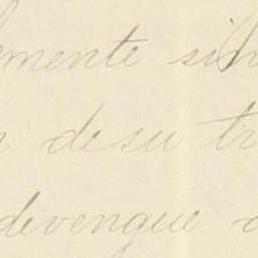 emente sin
de su tr
devengue